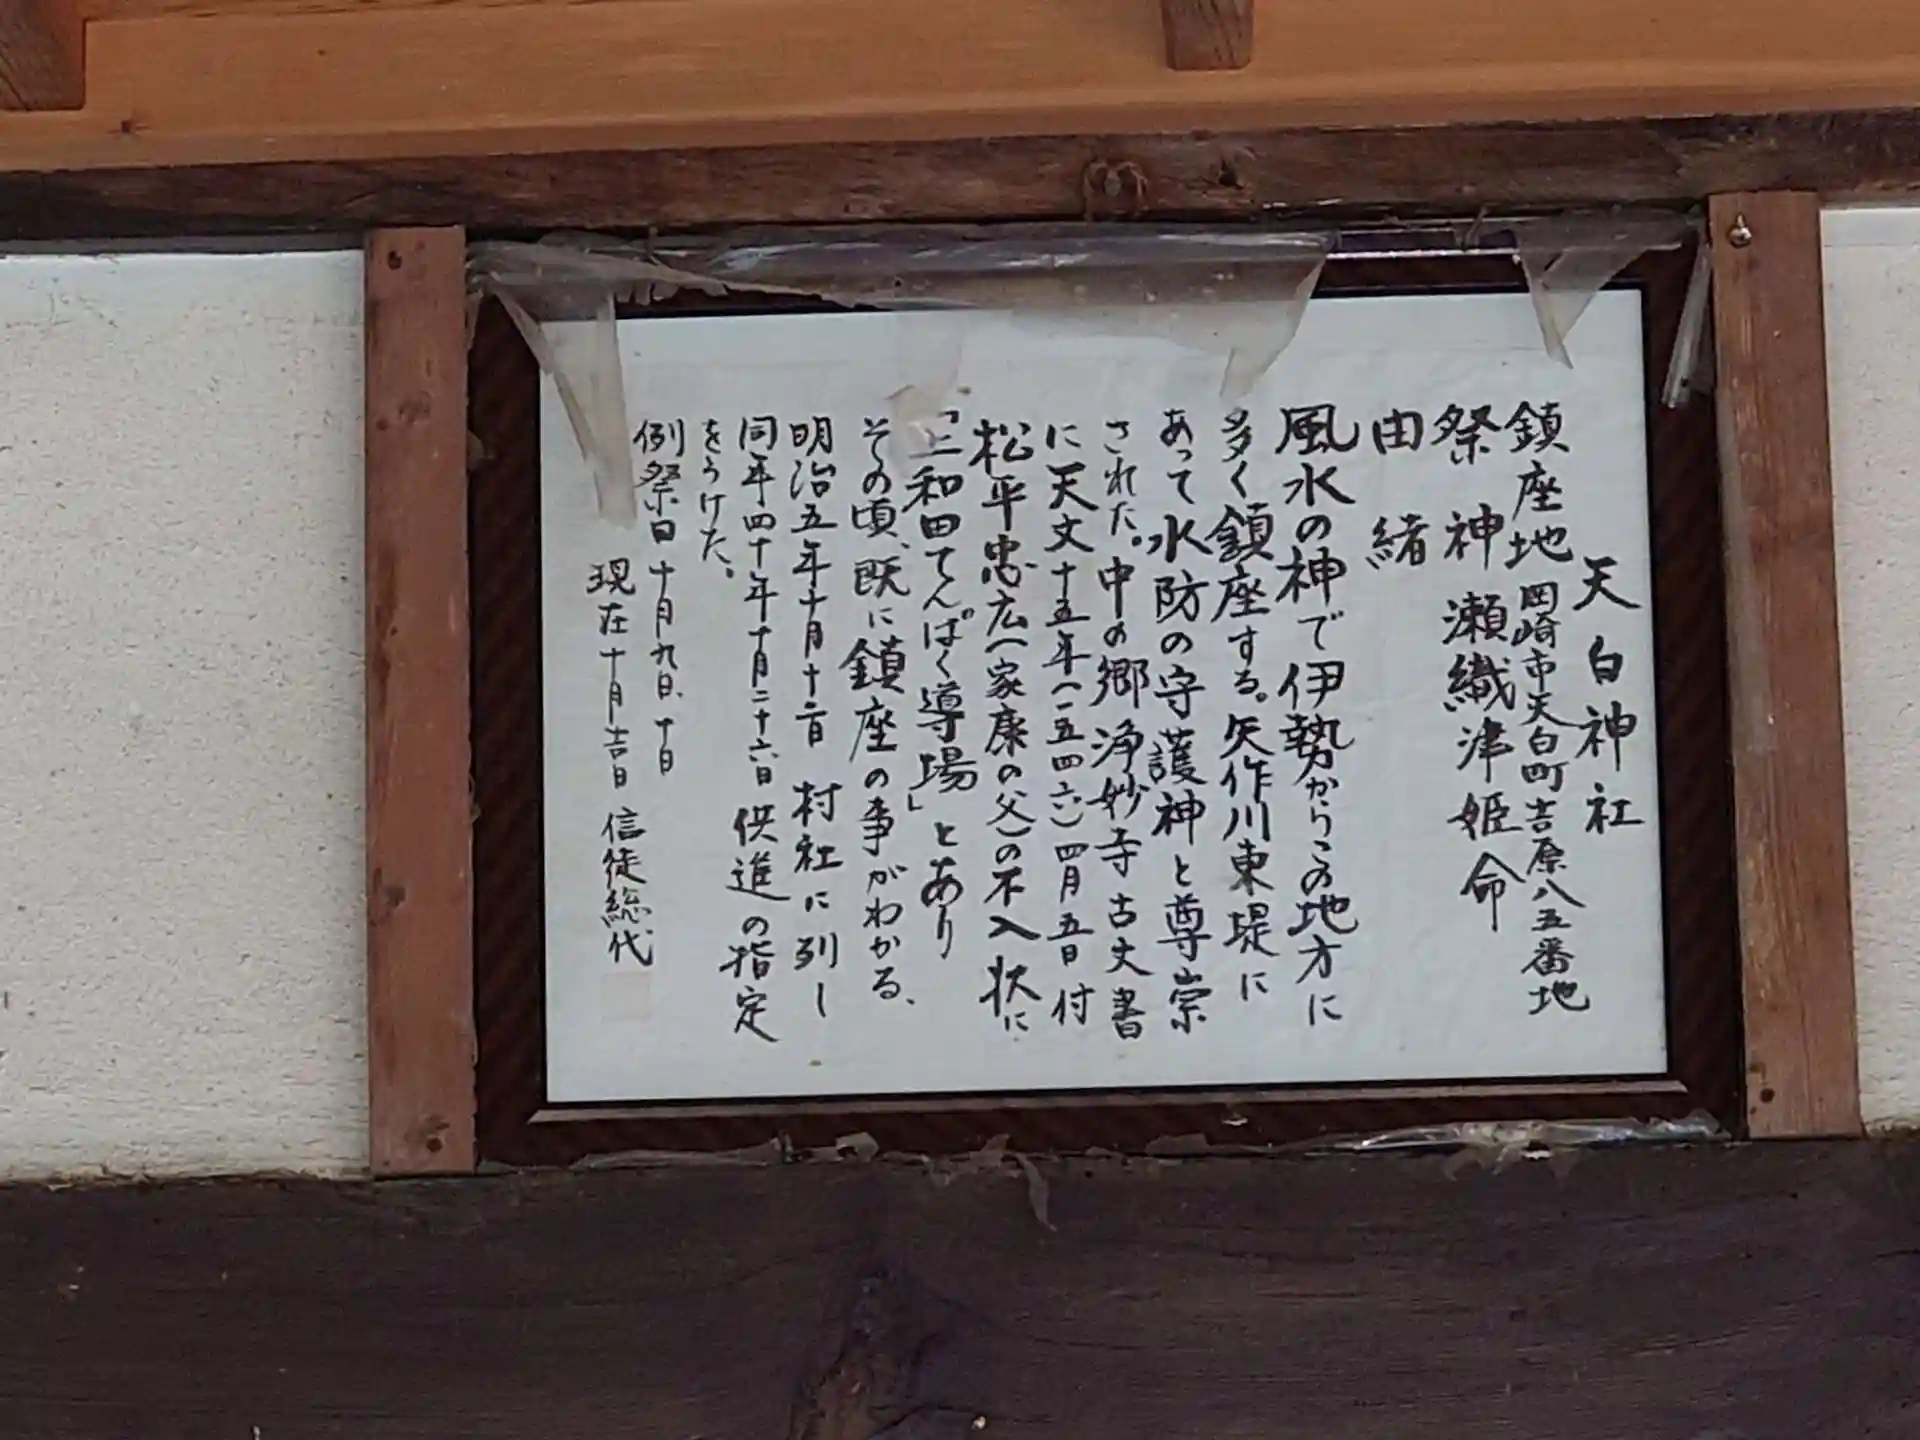 天白神社
鎮座地 岡崎市天白町吉原八五番地
祭神 瀬織津姫命
由緒
風水の神で伊勢からこの地方に
多く鎮座する。矢作川東堤に
あって水防の守護神と尊崇
された。中の郷浄妙寺古文書
に天文十五年(一五四六)四月五日付
松平忠広(家康の父)の不入状に
「上和田てんぱく導場」とあり
その頃、既に鎮座の事がわかる、
明治五年十月十二日 村社に列し
同年四十年十月二十六日 供進の指定
をうけた。
例祭日 十月九日、十日
現在十月吉日 信徒総代